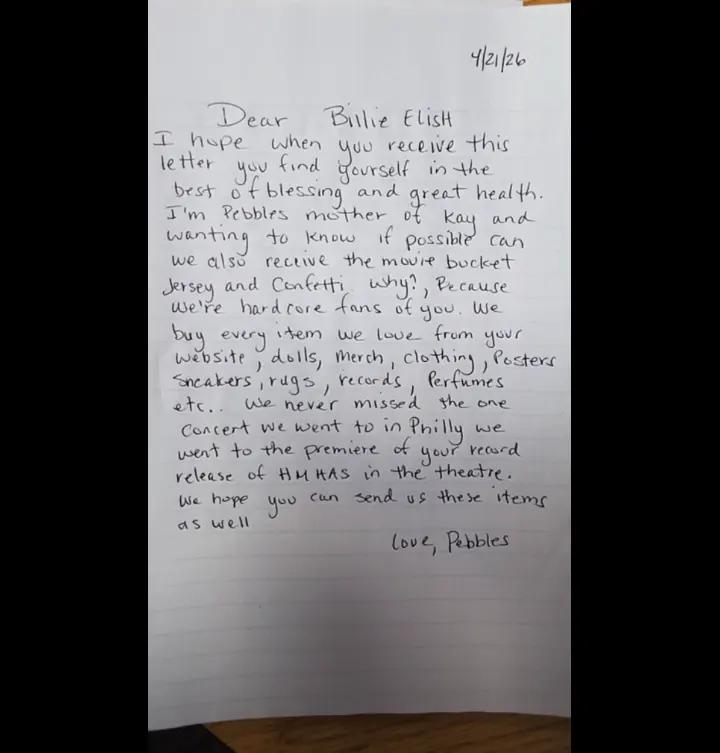 4/21/26
Dear Billie Elish
I hope when you receive this
letter you find yourself in the
best of blessing and great health.
I'm Pebbles mother of Kay and
wanting to know if possible can
we also receive the movie bucket
Jersey and Confetti why?, Because
we're hardcore fans of you. We
buy every item we love from your
website, dolls, merch, clothing, Posters
Sneakers, rugs, records, Perfumes
etc.. We never missed the one
Concert we went to in Philly we
went to the premiere of your record
release of HMHAS in the theatre.
We hope you can send us these items
as well
Love, Pebbles